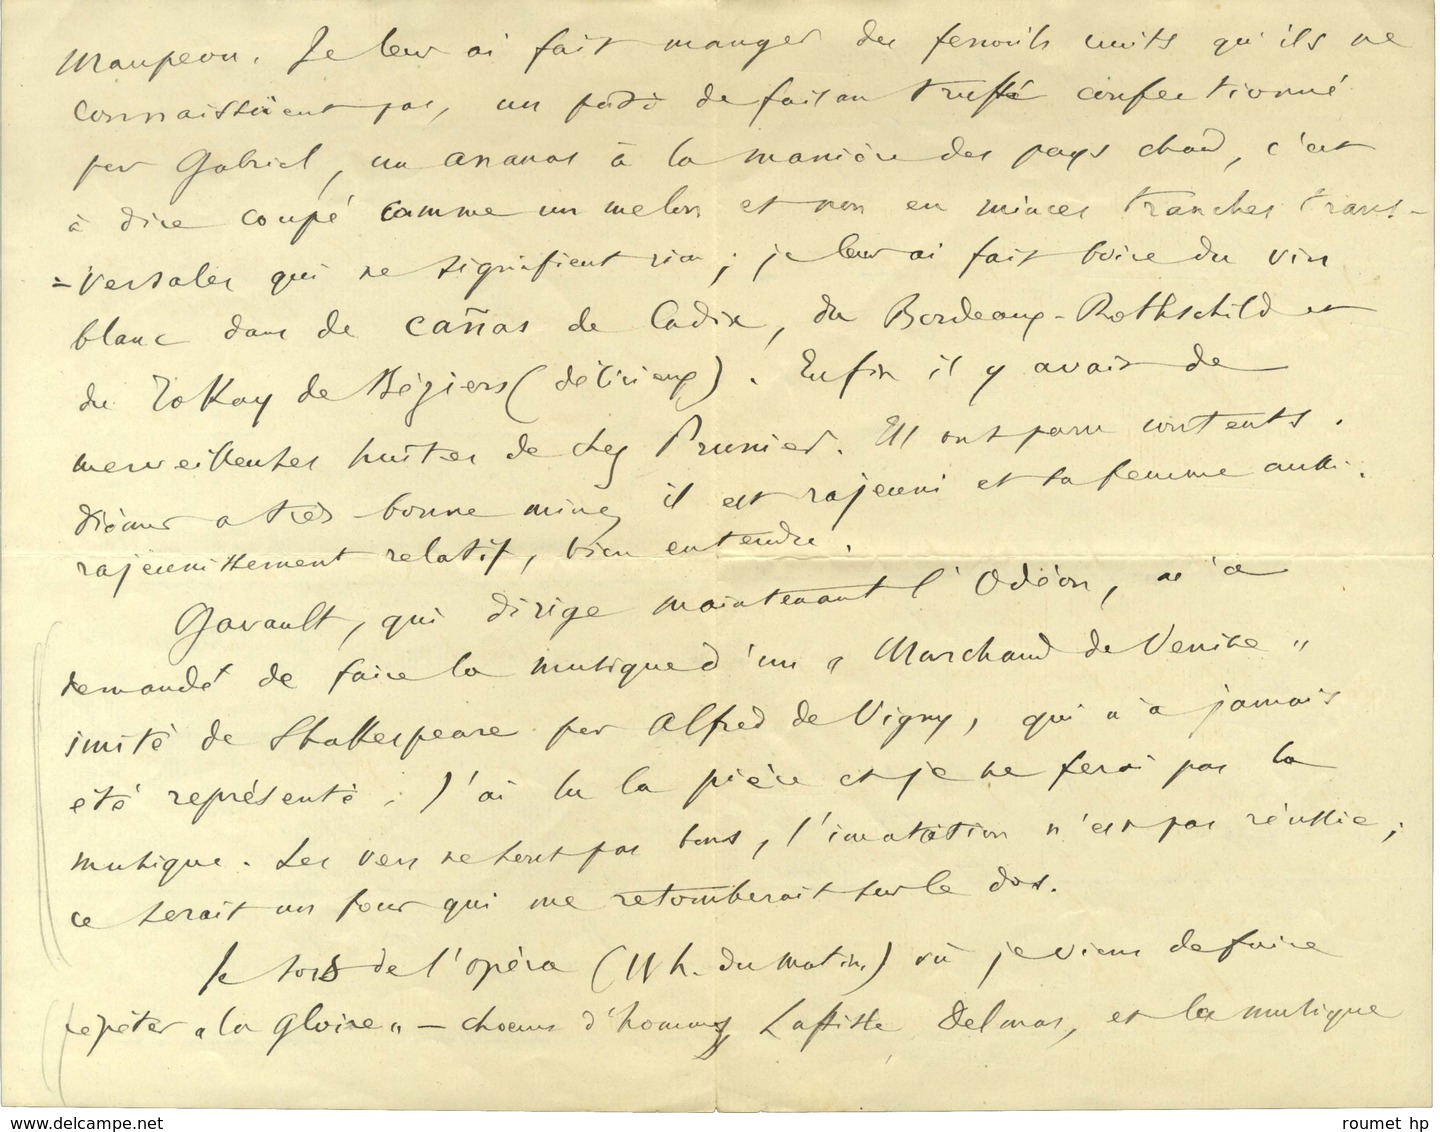 Maupeou. Je leur ai fait manger des fenouils cuits qu'ils ne
connaissaient pas, un pâté de faisan truffé confectionné
par Gabriel, un ananas à la manière des pays chauds, c'est
à dire coupé comme un melon et non en minces tranches trans-
=versales qui ne signifient rien ; je leur ai fait boire du vin
blanc dans de cañas de Cadix, du Bordeaux-Rothschild et
du Tokay de Béziers (délicieux). Enfin il y avait de
merveilleuses huitres de chez Prunier. Ils ont paru contents.
Diémer a très bonne mine, il est rajeuni et sa femme aussi.
rajeunissement relatif, bien entendu.
Gavault, qui dirige maintenant l'Odéon, m'a
demandé de faire la musique d'un "Marchand de Venise"
imité de Shakespeare par Alfred de Vigny, qui n'a jamais
été représenté. J'ai lu la pièce et je ne ferai pas la
musique. Les vers ne sont pas bons, l'imitation n'est pas réussie ;
ce serait un four qui me retomberait sur le dos.
Je sors de l'opéra (11 h. du matin) où je viens de faire
répéter "la Gloire" — choeurs d'hommes, Delmas, et la musique
roumet hp